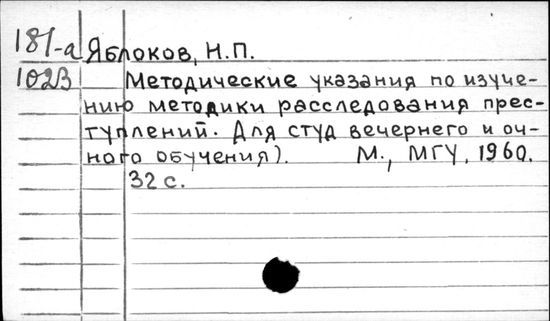 181-а Яблоков, Н.П.
1023 Методические указания по изуче-
нию методики расследования прес-
туплений. Для студ вечернего и оч-
ного обучения). М., МГУ, 1960.
32 с.